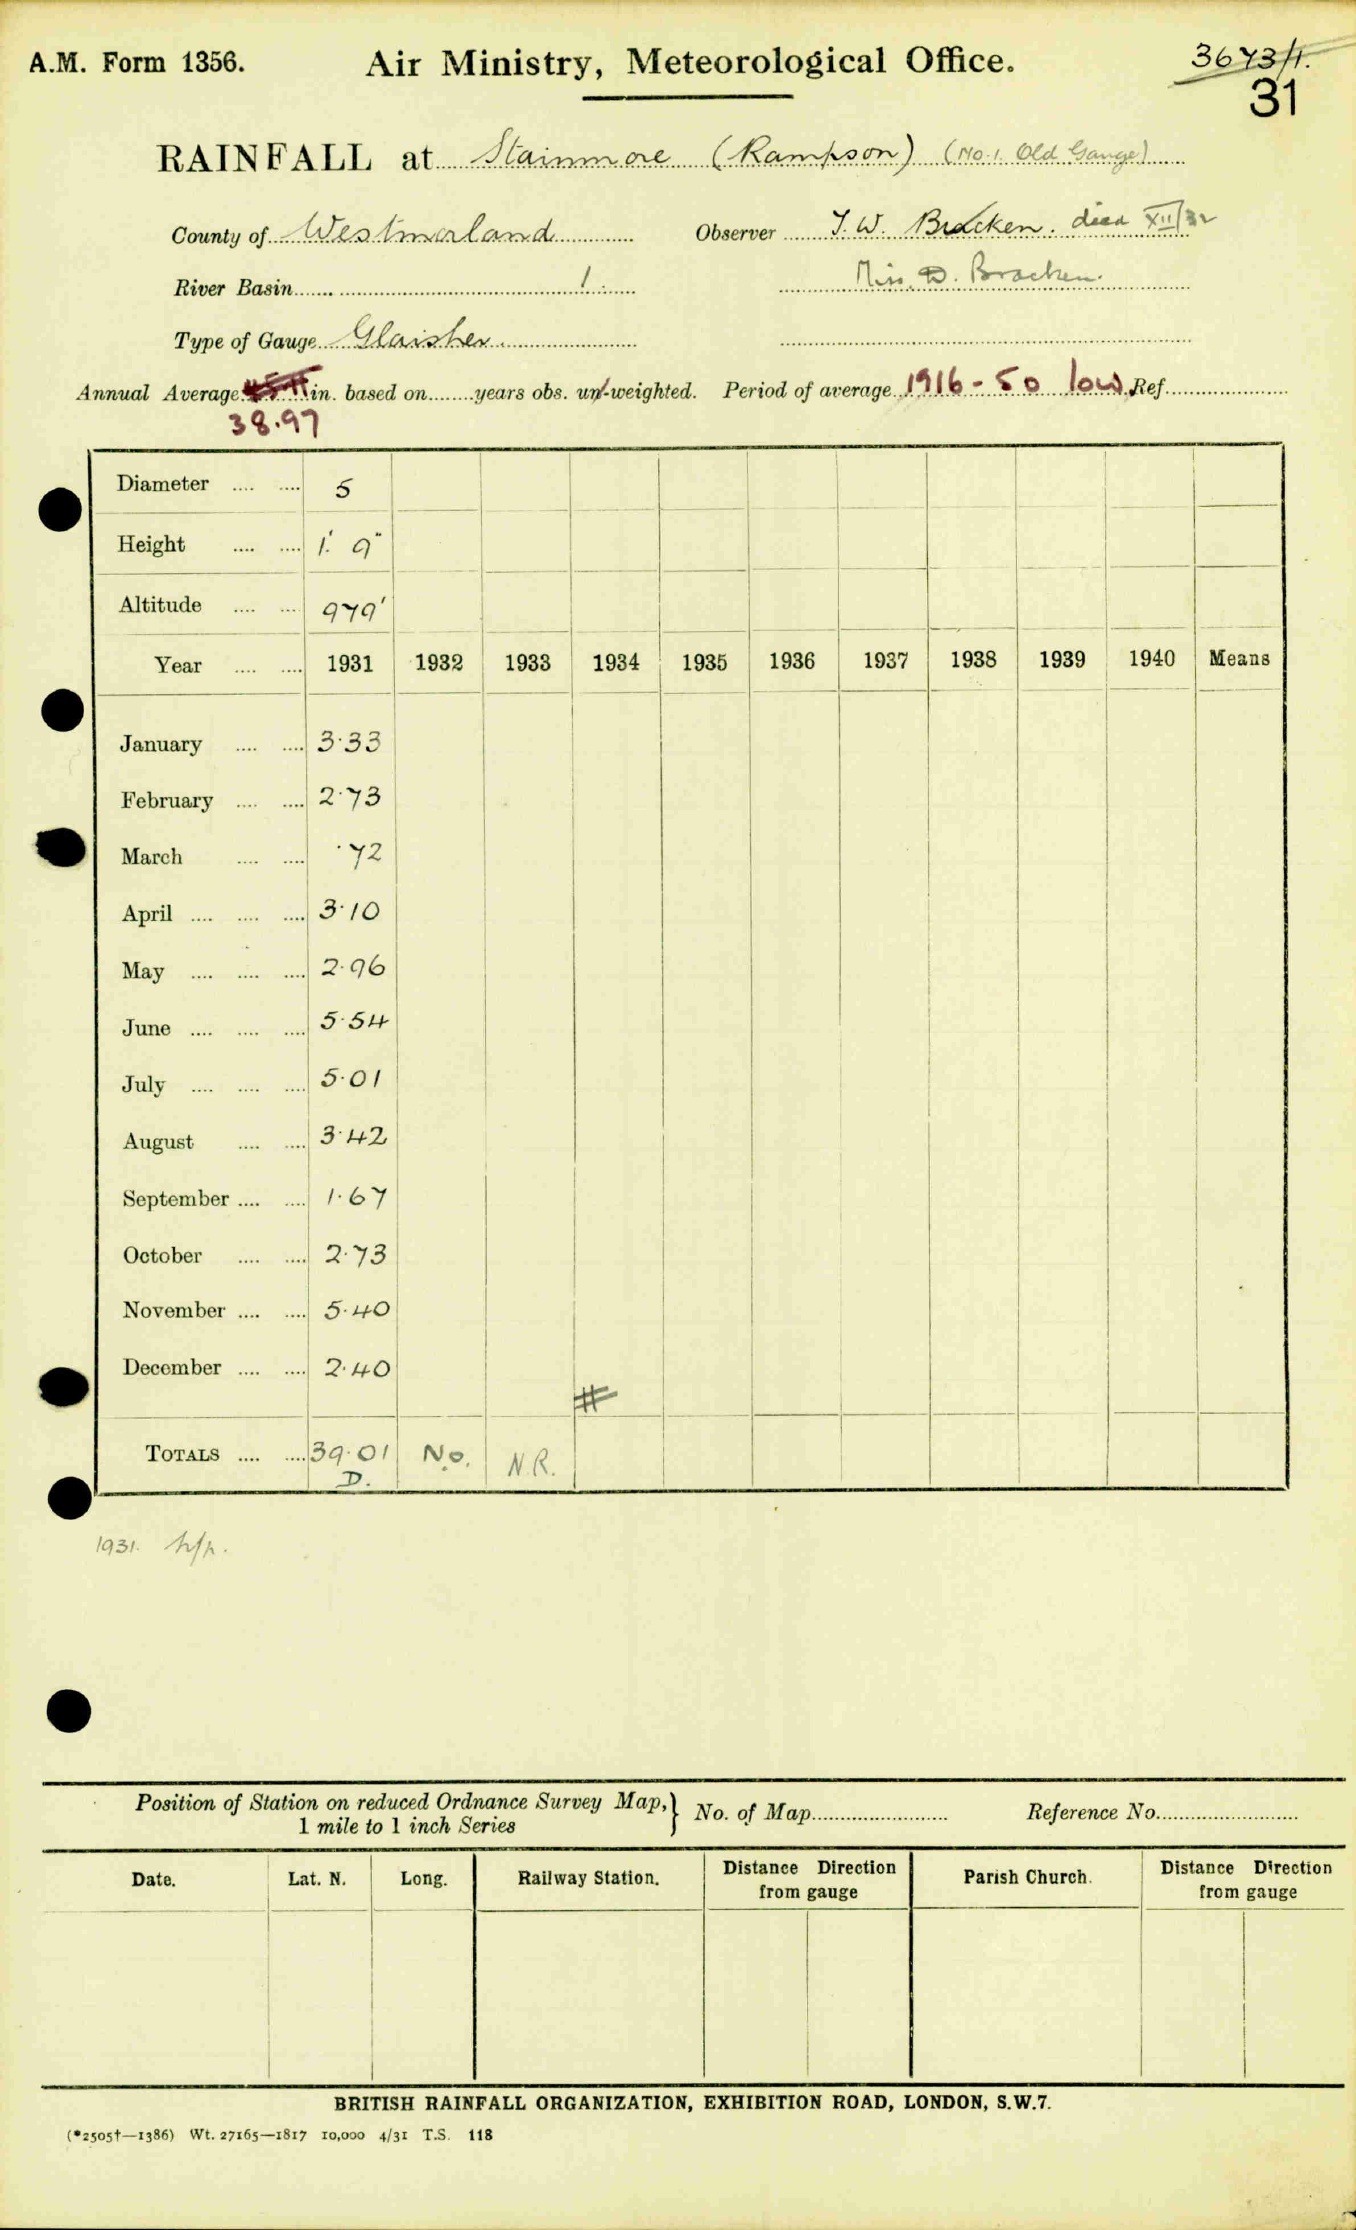 A.M. Form 1356.
Air Ministry, Meteorological Office.
3673/1.
31
RAINFALL at Stainmore (Rampson) (No.1. Old Gauge)
County of Westmorland Observer T. W. Bracken. died XII/32
River Basin 1. Miss D. Bracken.
Type of Gauge Glaisher.
Annual Average in. based on years obs. un/-weighted. Period of average 1916-50 low Ref.
38.97
Diameter .... .... 5
Height .... .... 1' 9"
Altitude .... .... 979'
Year .... .... 1931 1932 1933 1934 1935 1936 1937 1938 1939 1940 Means
January .... .... 3·33
February .... .... 2·73
March .... .... ·72
April .... .... .... 3·10
May .... .... .... 2·96
June .... .... .... 5·54
July .... .... .... 5·01
August .... .... 3·42
September .... .... 1·67
October .... .... 2·73
November .... .... 5·40
December .... .... 2·40
#
TOTALS .... .... 39·01 No. N.R.
D.
1931.
Position of Station on reduced Ordnance Survey Map,} No. of Map Reference No.
1 mile to 1 inch Series
Date. Lat. N. Long. Railway Station. Distance Direction from gauge Parish Church. Distance Direction from gauge
BRITISH RAINFALL ORGANIZATION, EXHIBITION ROAD, LONDON, S.W.7.
(*2505†—1386) Wt. 27165—1817 10,000 4/31 T.S. 118